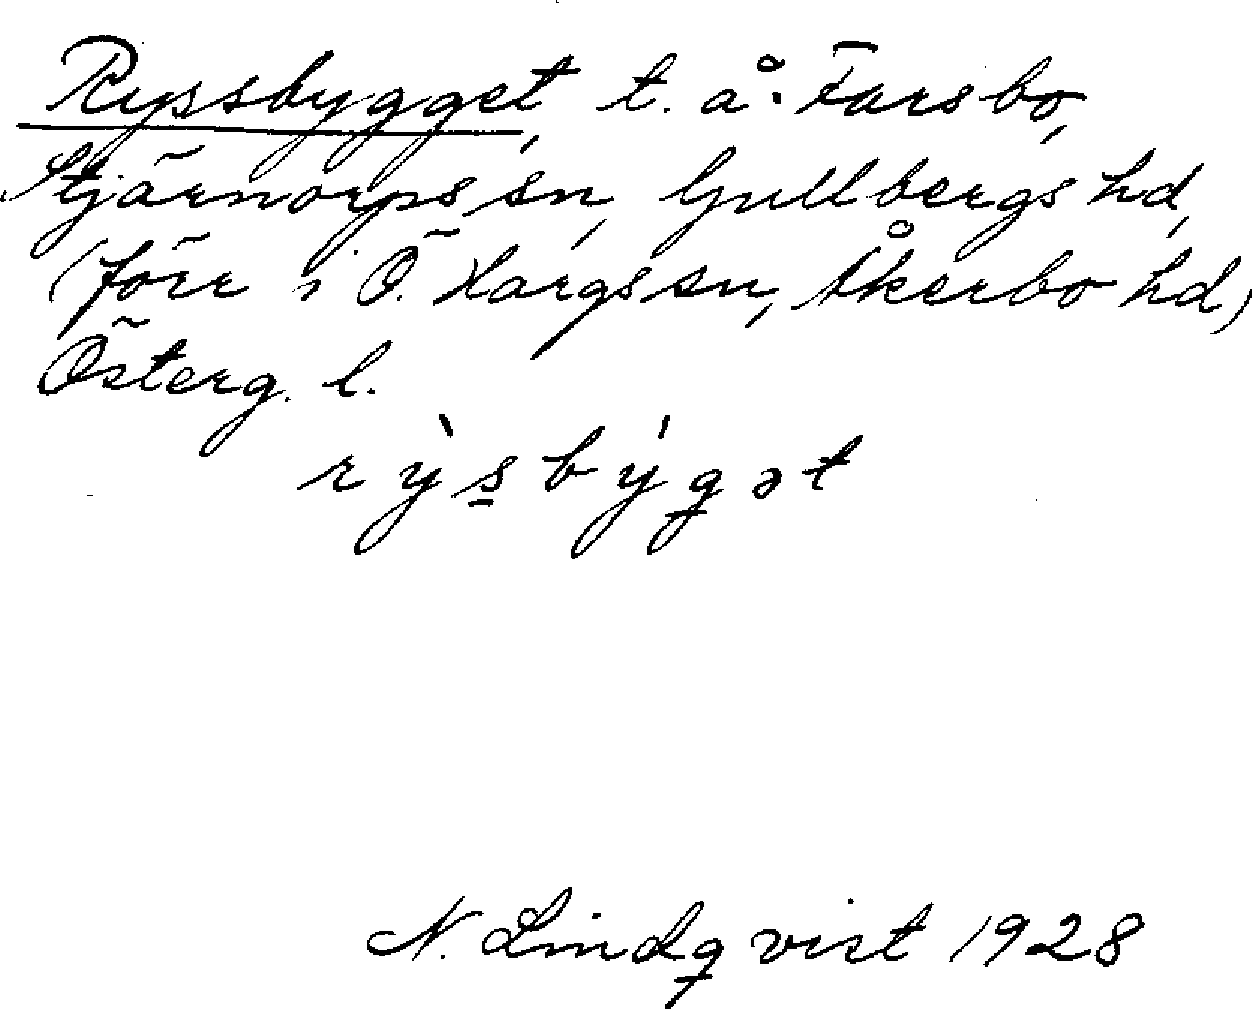 Ryssbygget, t. å. Farsbo,
Stjärnorps sn, Gullbergs hd,
(förr i Ö. Hargs sn, Åkerbo hd)
Österg. l.
rỳs̲býgət
N. Lindqvist 1928